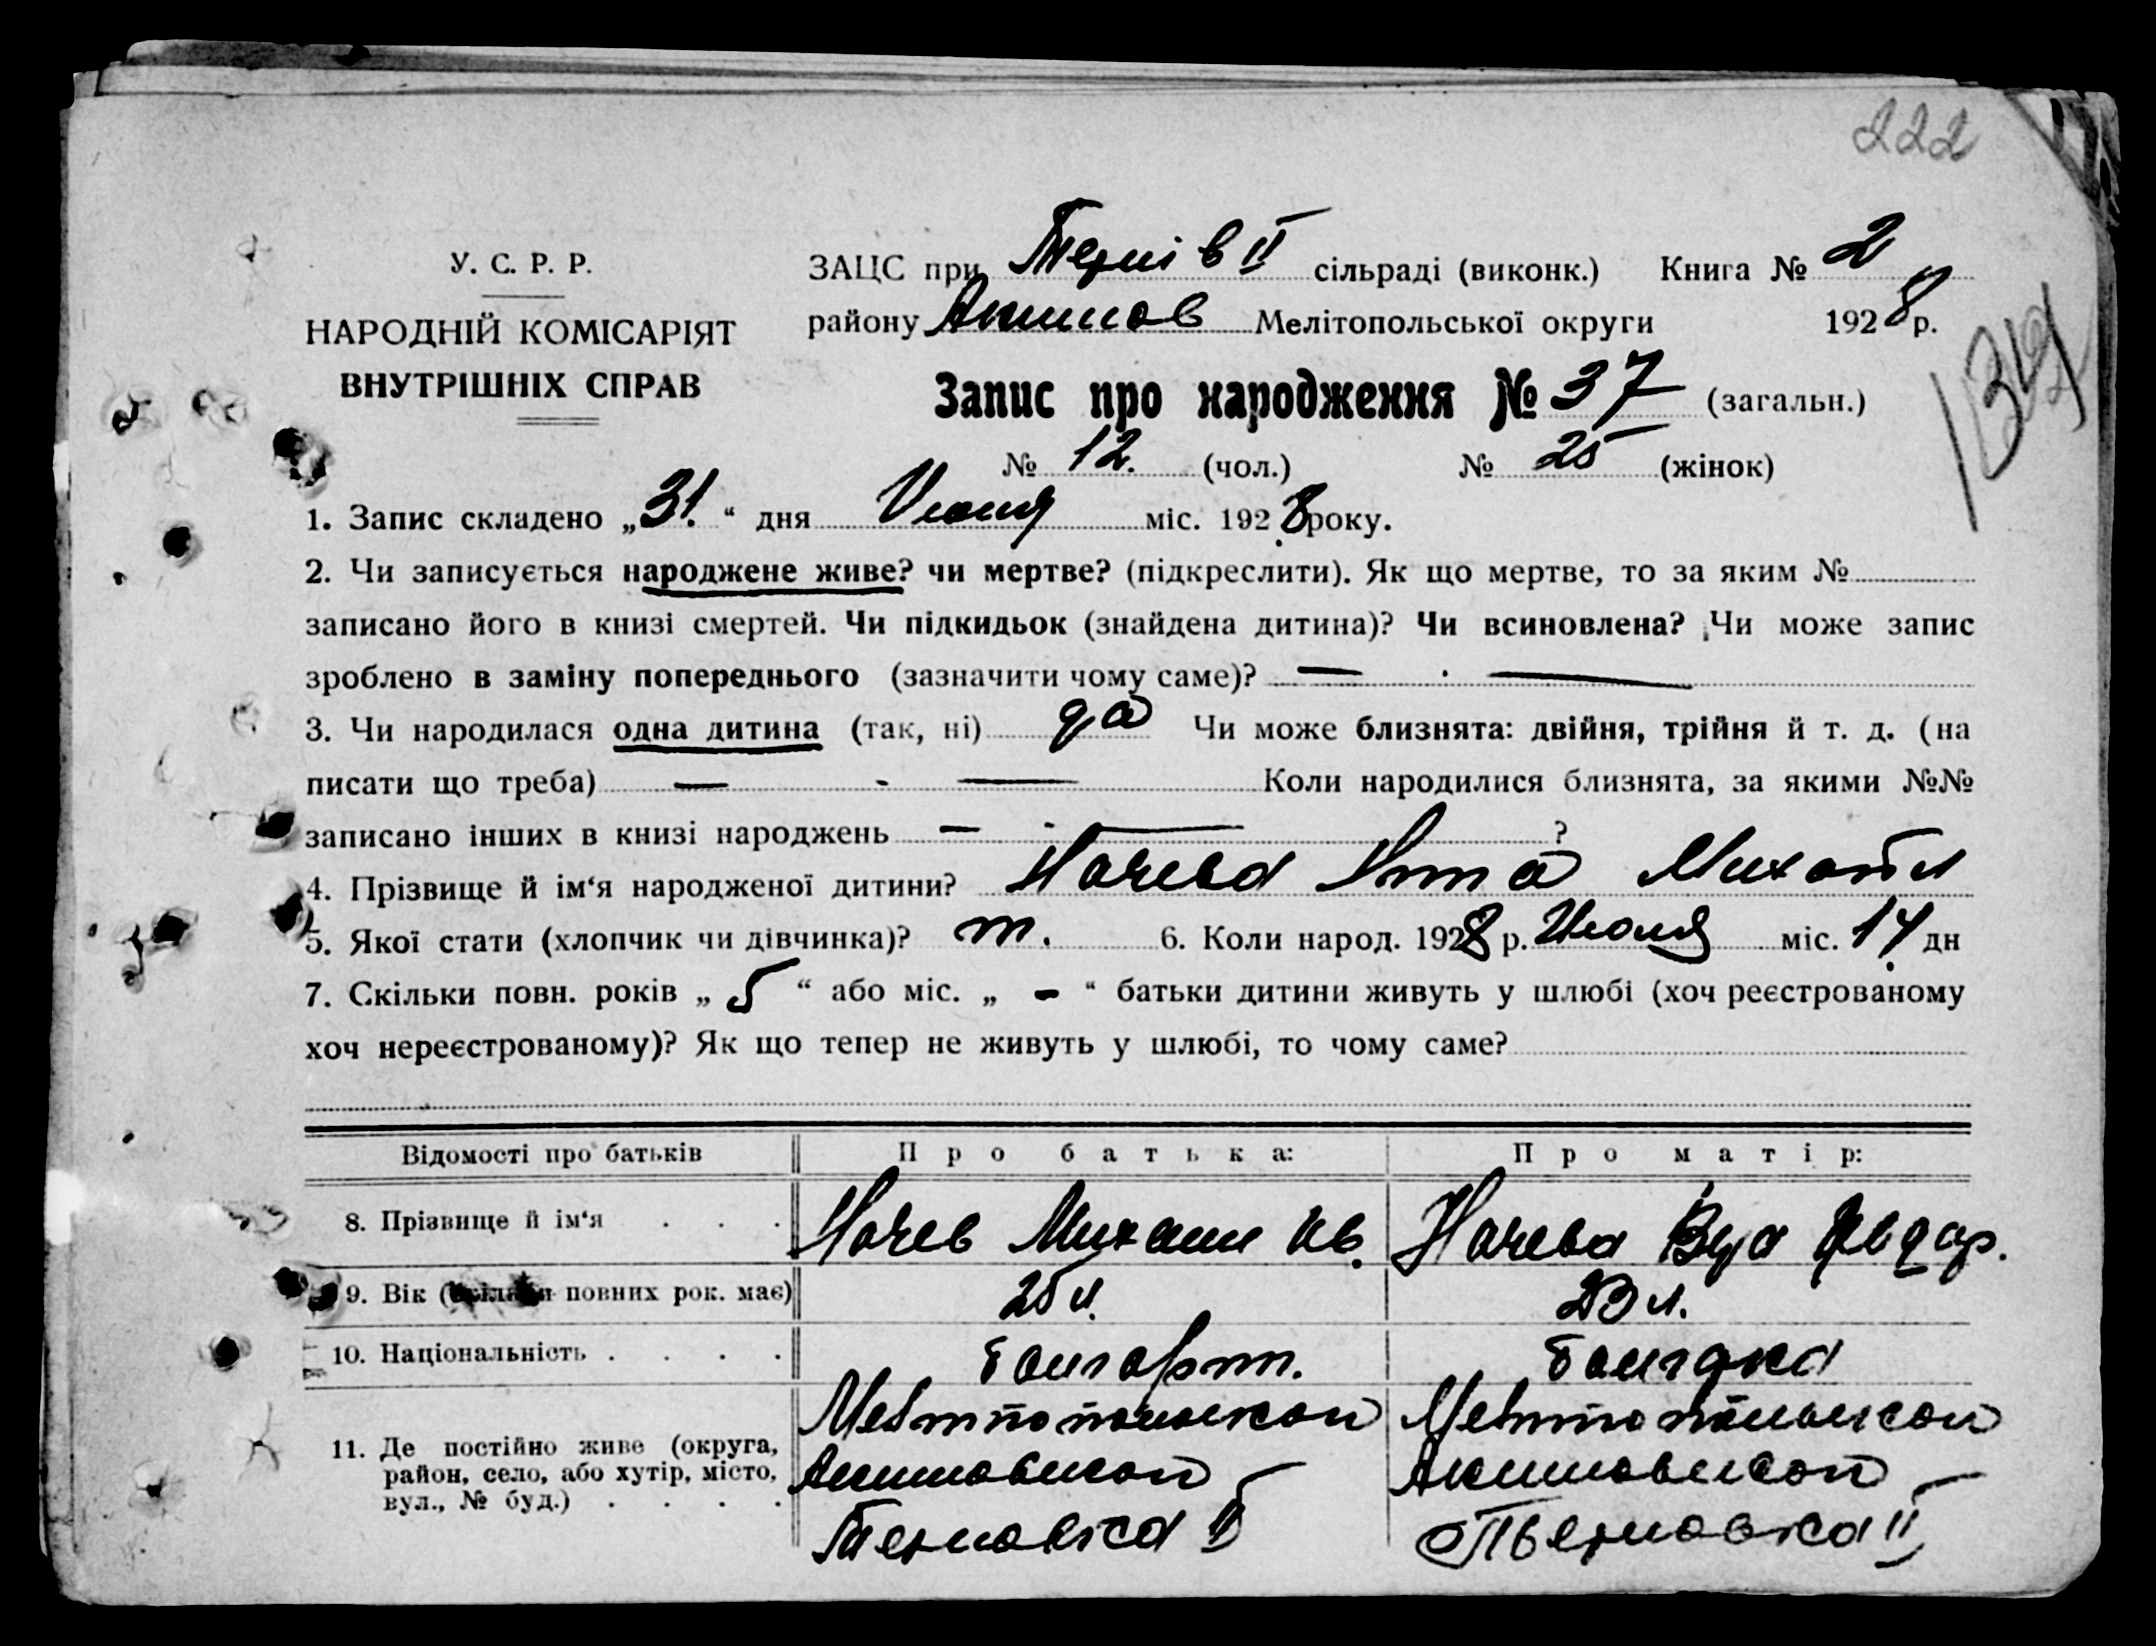 222
У. С. Р. Р.
НАРОДНІЙ КОМІСАРІЯТ
ВНУТРІШНІХ СПРАВ
ЗАЦС при Терні в II сільраді (виконк.) Книга № 2
району Акимов Мелітопольської округи 1928 р.
Запис про народження № 37 (загальн.)
№ 12. (чол.) № 25 (жінок)
1. Запис складено „31.“ дня міс. 1928 року.
2. Чи записується народжене живе? чи мертве? (підкреслити). Як що мертве, то за яким №
записано його в книзі смертей. Чи підкидьок (знайдена дитина)? Чи всиновлена? Чи може запис
зроблено в заміну попереднього (зазначити чому саме)? — —
3. Чи народилася одна дитина (так, ні) да Чи може близнята: двійня, трійня й т. д. (на
писати що треба) — - — Коли народилися близнята, за якими №№
записано інших в книзі народжень — - — ?
4. Прізвище й ім‘я народженої дитини? Начева Михайл
5. Якої стати (хлопчик чи дівчинка)? 6. Коли народ. 1928 р. Июля міс. 14 дн
7. Скільки повн. років „ 5 “ або міс. „ - “ батьки дитини живуть у шлюбі (хоч реєстрованому
хоч нереєстрованому)? Як що тепер не живуть у шлюбі, то чому саме?
Відомості про батьків Про батька: Про матір:
8. Прізвище й ім‘я . . . Начев Михаил Ив. Начева Федор.
9. Вік (скільки повних рок. має) 25 л. 23 л.
10. Національність . . . .
11. Де постійно живе (округа, Мелитопольской Мелитопольской
район, село, або хутір, місто, Акимовской Акимовской
вул., № буд.) . . . . Терновка II Терновка II